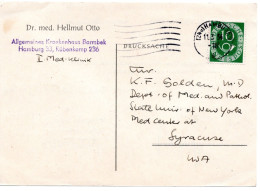 Dr. med. Hellmut Otto
Allgemeines Krankenhaus Barmbek
Hamburg 33, Rübenkamp 236
II Med. Klinik
DRUCKSACHE
10
K. F. Golden, M.D
Dept. of Med. and Pathol.
State Univ. of New York
Med. center at
Syracuse
USA